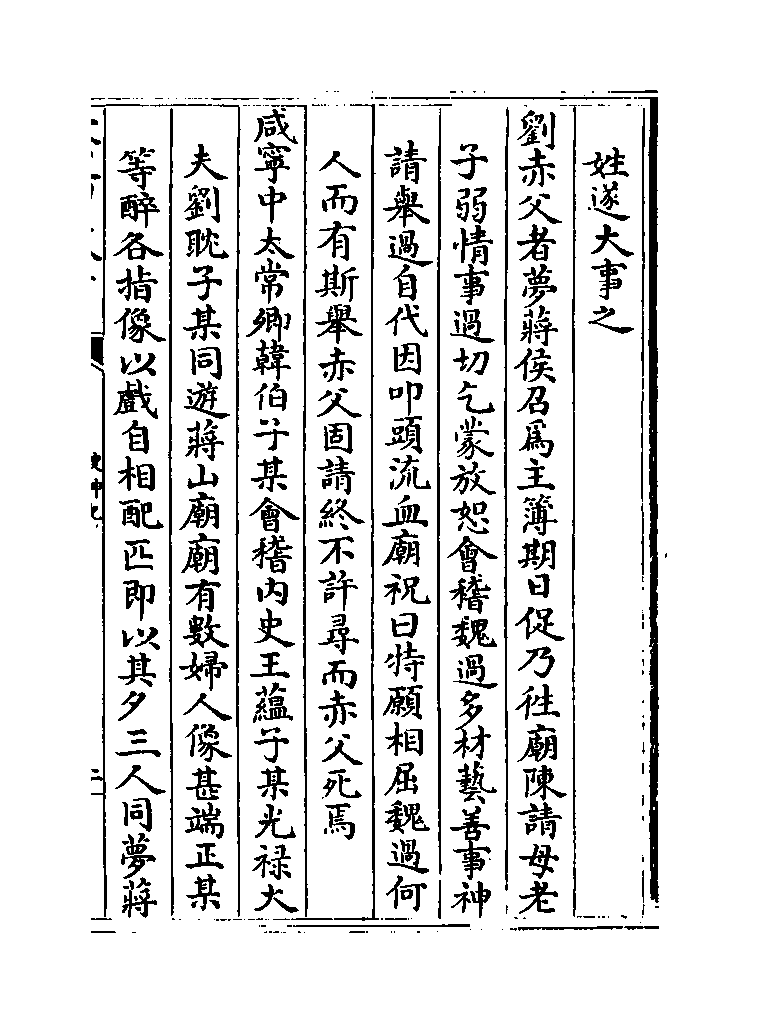 姓遂大事之
劉赤父者夢蔣侯召爲主簿期日促乃徃廟陳請母老
子弱情事過切乞蒙放恕會稽魏過多材藝善事神
請舉過自代因叩頭流血廟祝曰特願相屈魏過何
人而有斯舉赤父固請終不許尋而赤父死焉
咸寧中太常卿韓伯子某會稽内史王藴子某光禄大
夫劉耽子某同遊蔣山廟廟有數婦人像甚端正某
等醉各指像以戲自相配匹即以其夕三人同夢蔣